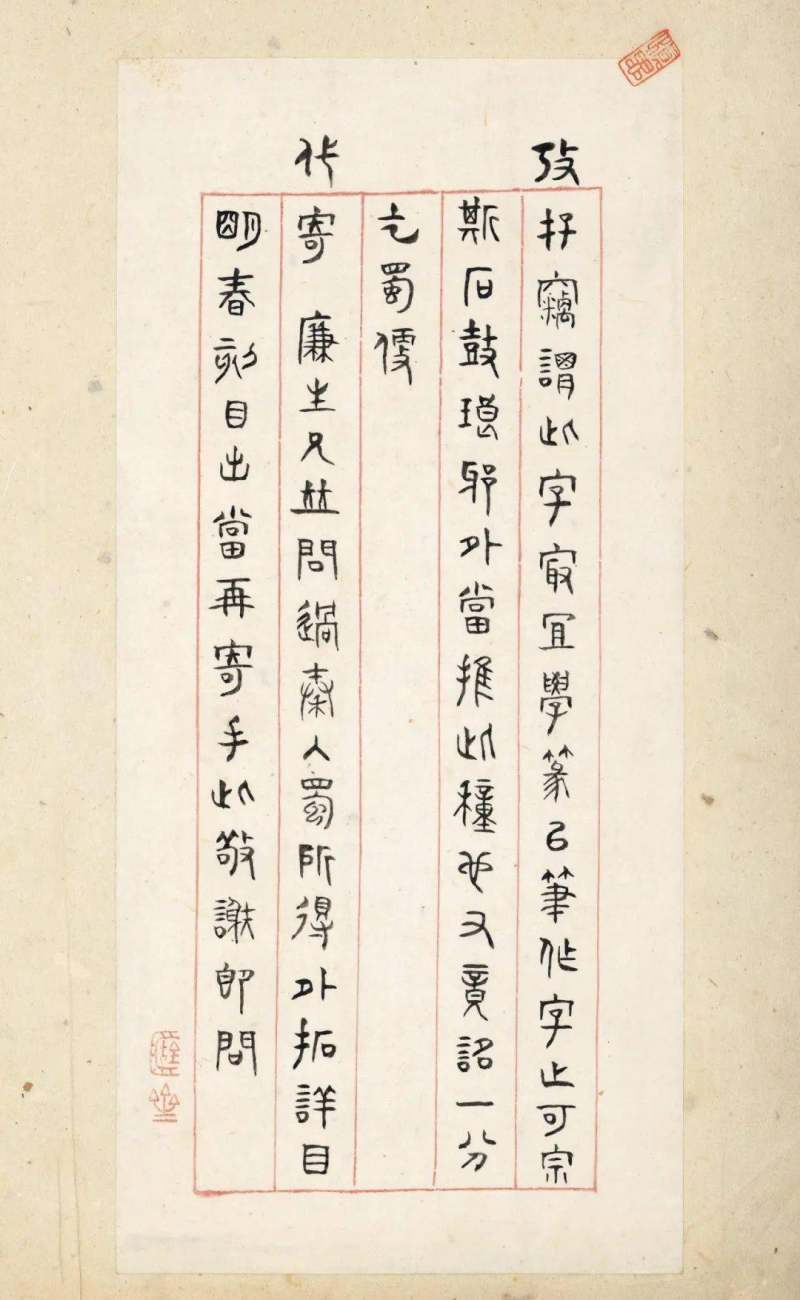 攷好竊謂此字最宜學篆㠯筆作字止可宗
斯石鼓琅邪外當推此種也又量詔一分
乞蜀便
代寄 廉生兄並問過秦入蜀所得外拓詳目
明春刻目出當再寄手此敬謝即問